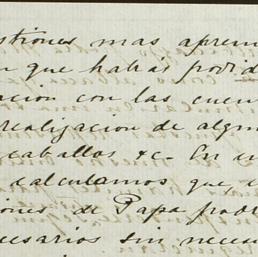 stiones mas aprem
n que habás podid
acion con las cuen
realizacion de algun
caballos &c. En
calculamos que,
iones de Papa podr
cesarios sin neces